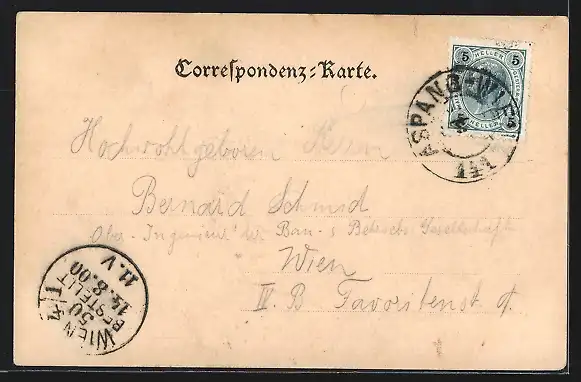 Correspondenz-Karte.
5 HELLER 5
5
HELLER
ASPANG-WIEN
141
Hochwohlgeboren Herrn
Bernard Schmid
Ober-Ingenieur der Bau- & Betriebs Gesellschaft
Wien
IV. B Favoritenst
WIEN 4/1
50
BESTELLT
14.8.00
11.V